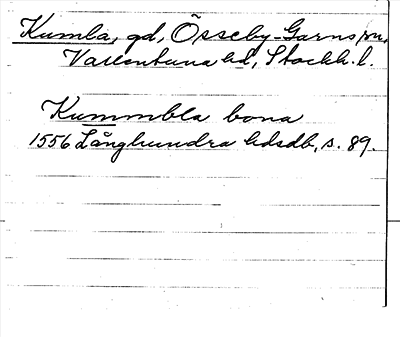 Kumla, gd, Össeby-Garns sn,
Vallentuna hd, Stockh. l.
Kummbla bona
1556 Långhundra hdsdb, s. 89.